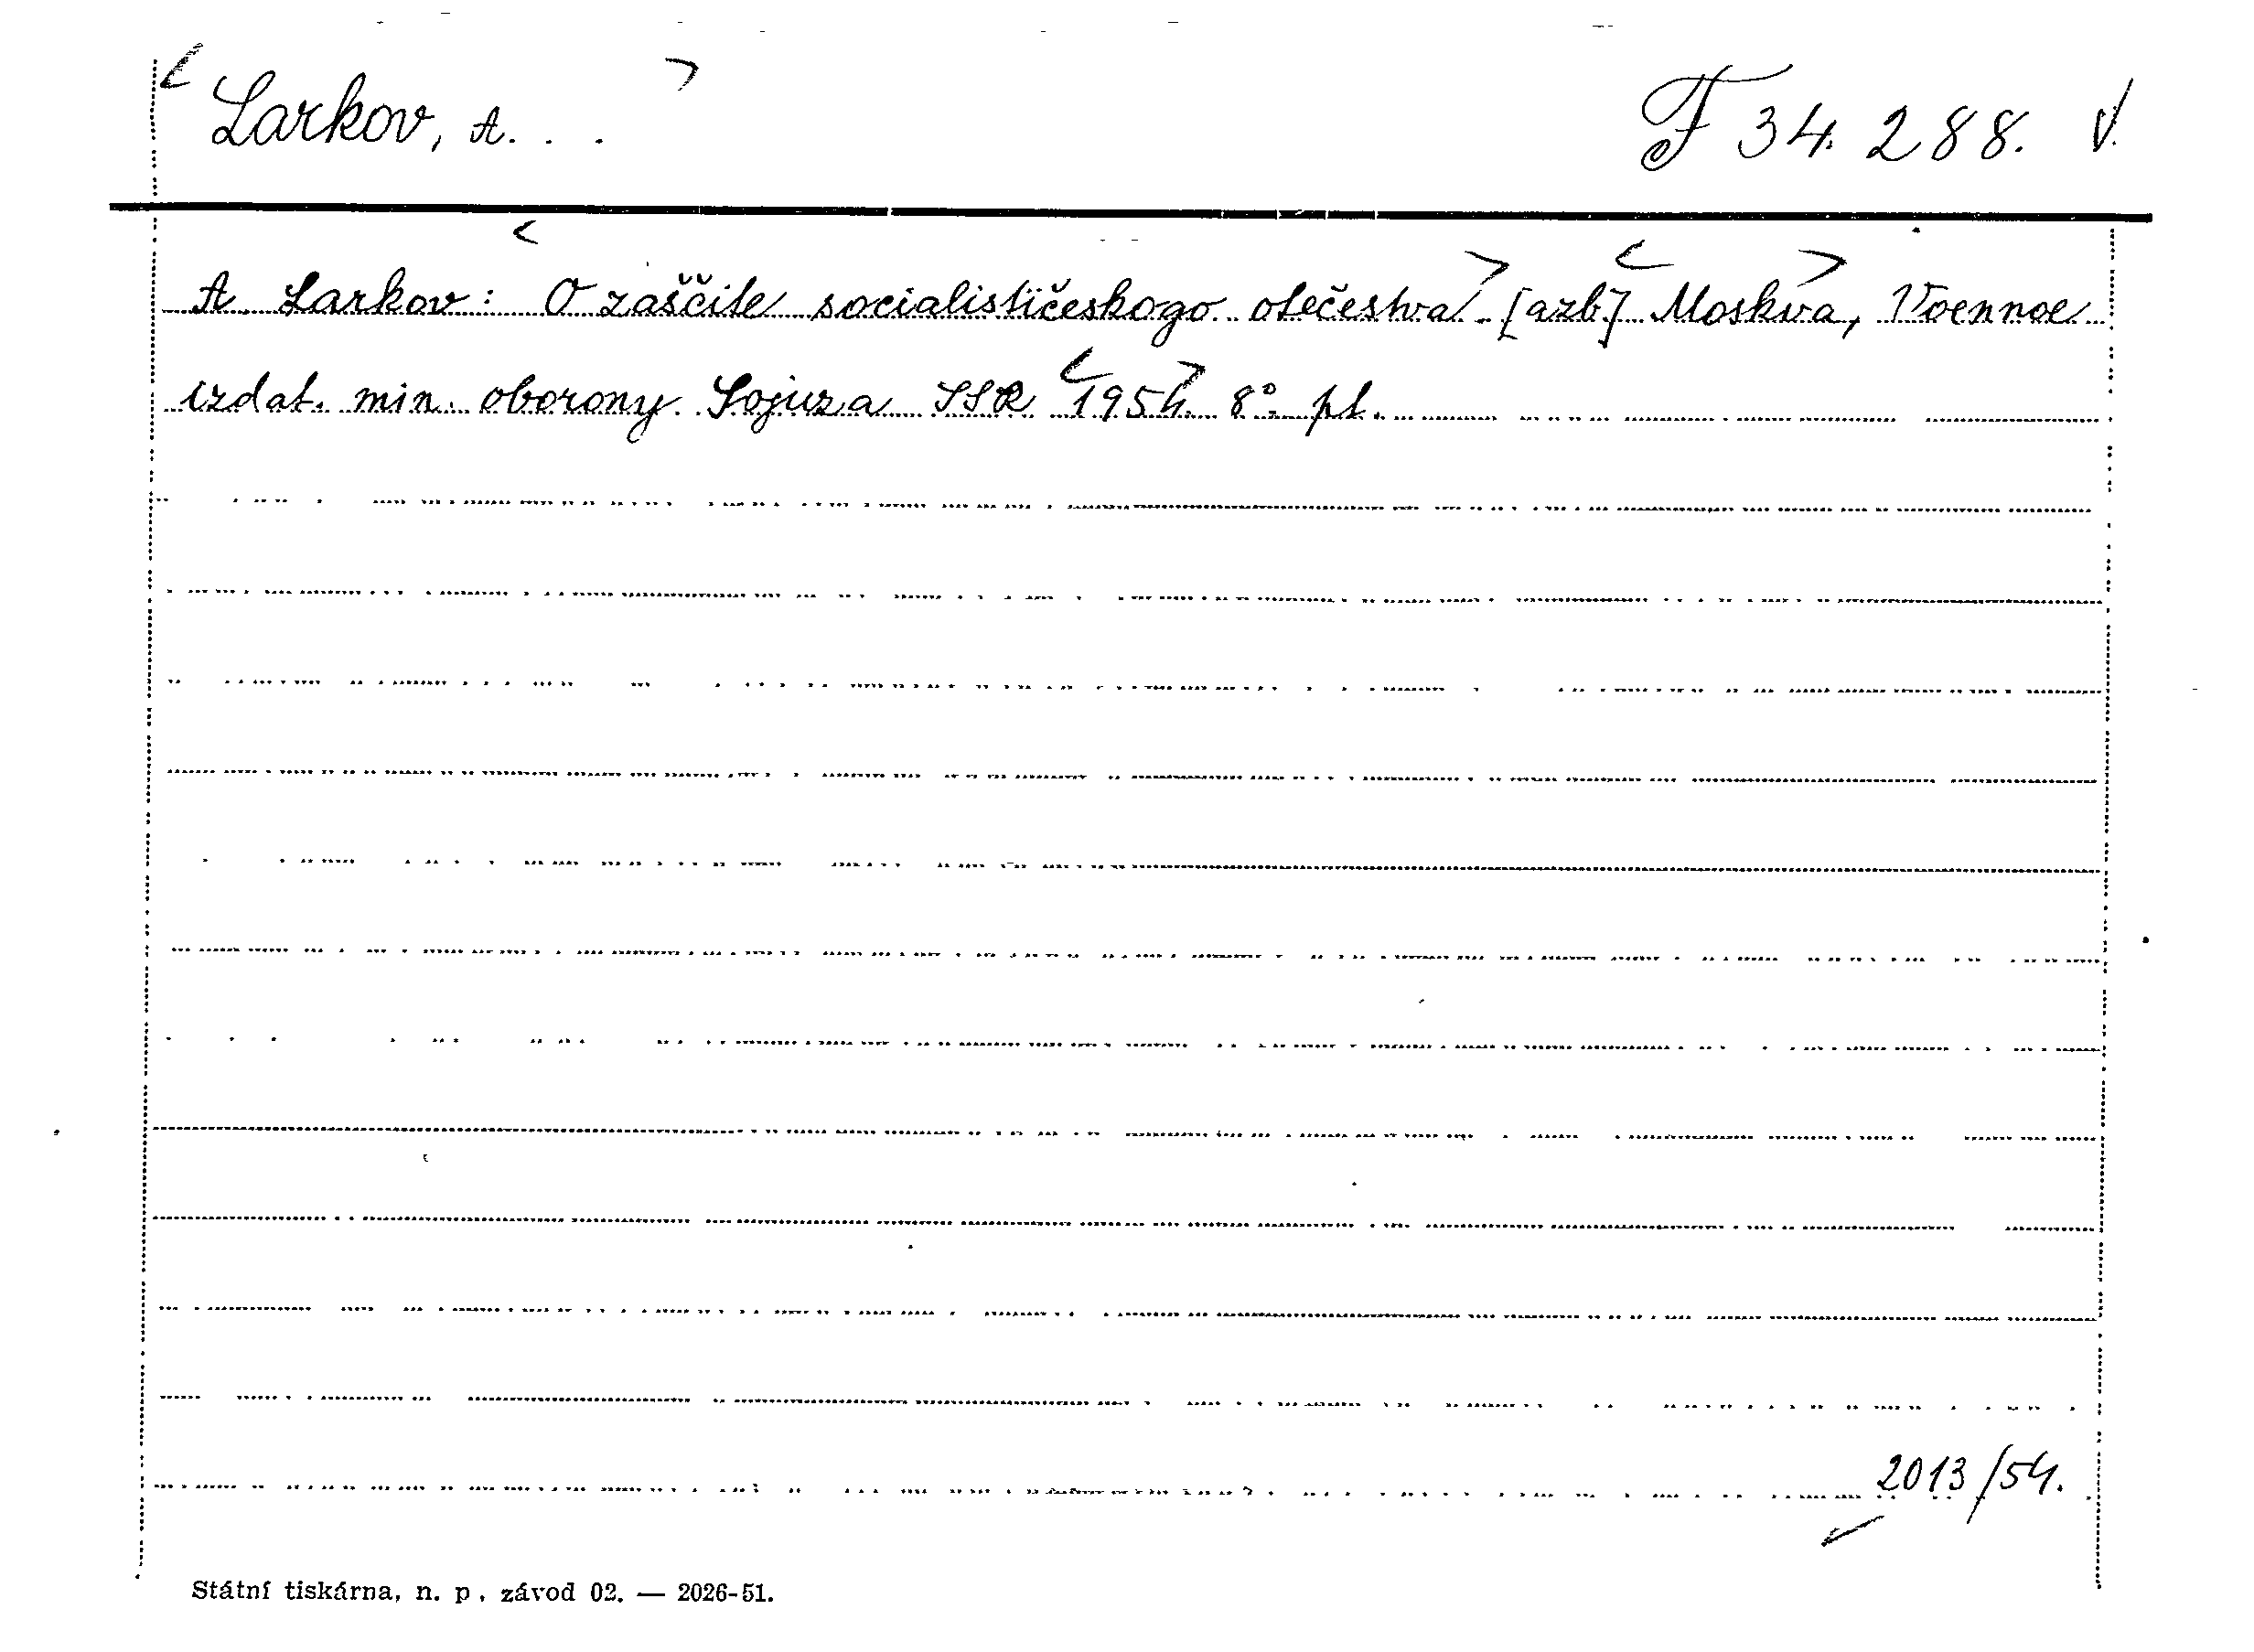 Larkov, A. . .
F 34.288. V.
A. Larkov: O zaščite socialističeskogo otečestva. [azb.] Moskva, Voennoe
izdat. min. oborony Sojuza SSR 1954. 8°. pl.
2013/54.
Státní tiskárna, n. p., závod 02. — 2026-51.